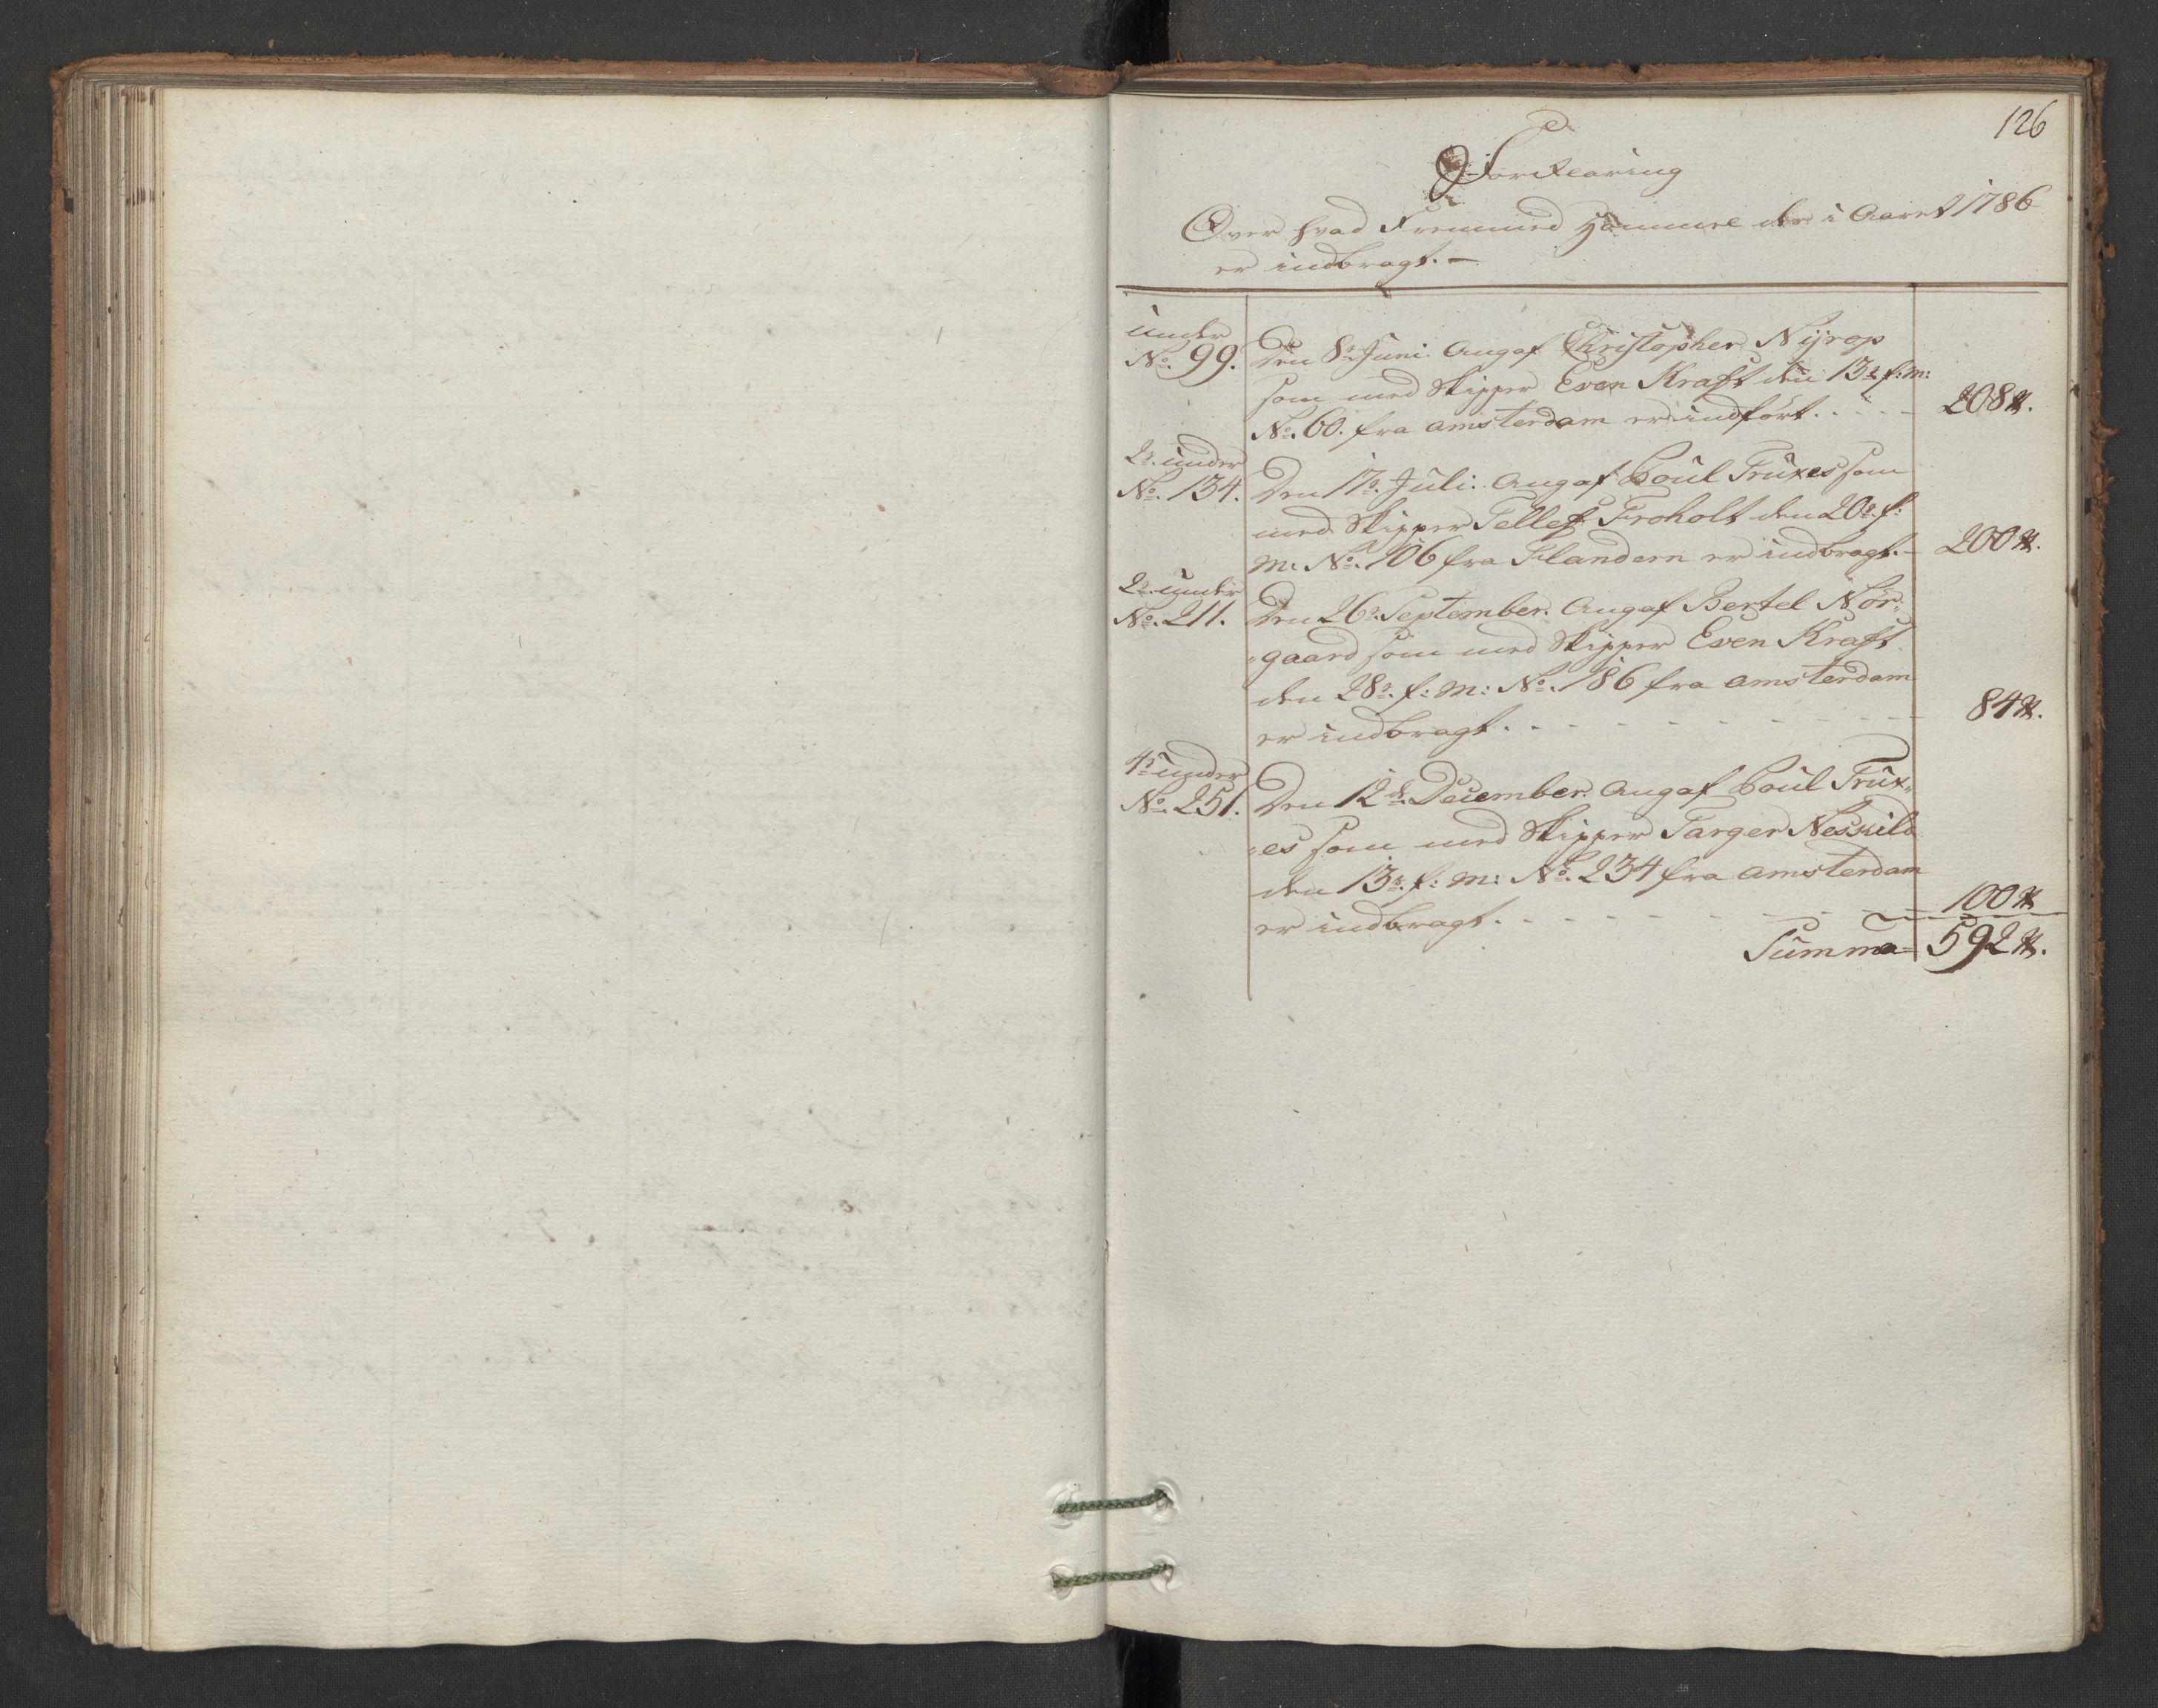 126
Forklaring
Over hvad Fremmed Hommel der i Aaret 1786
er indbragt. —
under
No. 99. Den 8de Juni. Angaf Christopher Nÿrop
som med Skipper Even Kraft den 13de f: m:
No. 60. fra Amsterdam er indført. . . . . 208 ℔.
2de under
No. 134. Den 17de Juli. Angaf Poül Trüxes som
med Skipper Tellef Froholt den 20de f:
m: No. 106 fra Flandern er indbragt. — 200 ℔.
2de under
No. 211. Den 26de September. Angaf Bertel Nør-
-gaard som med Skipper Even Kraft
den 28de f: m: No. 186 fra Amsterdam
er indbragt. - - - - - 84 ℔.
4de under
No. 251. Den 12de December. Angaf Poül Trüx-
-es som med Skipper Targer Neskild
den 13de f: m: No. 234 fra Amsterdam
er indbragt. - - - - - 100 ℔
Summa - 592 ℔.